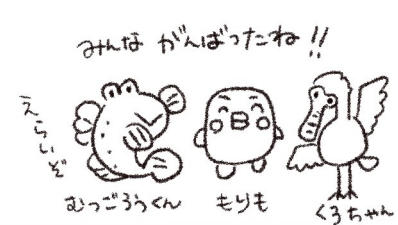 みんな がんばったね!!
えらいぞ
むつごろうくん
もりも
くろちゃん